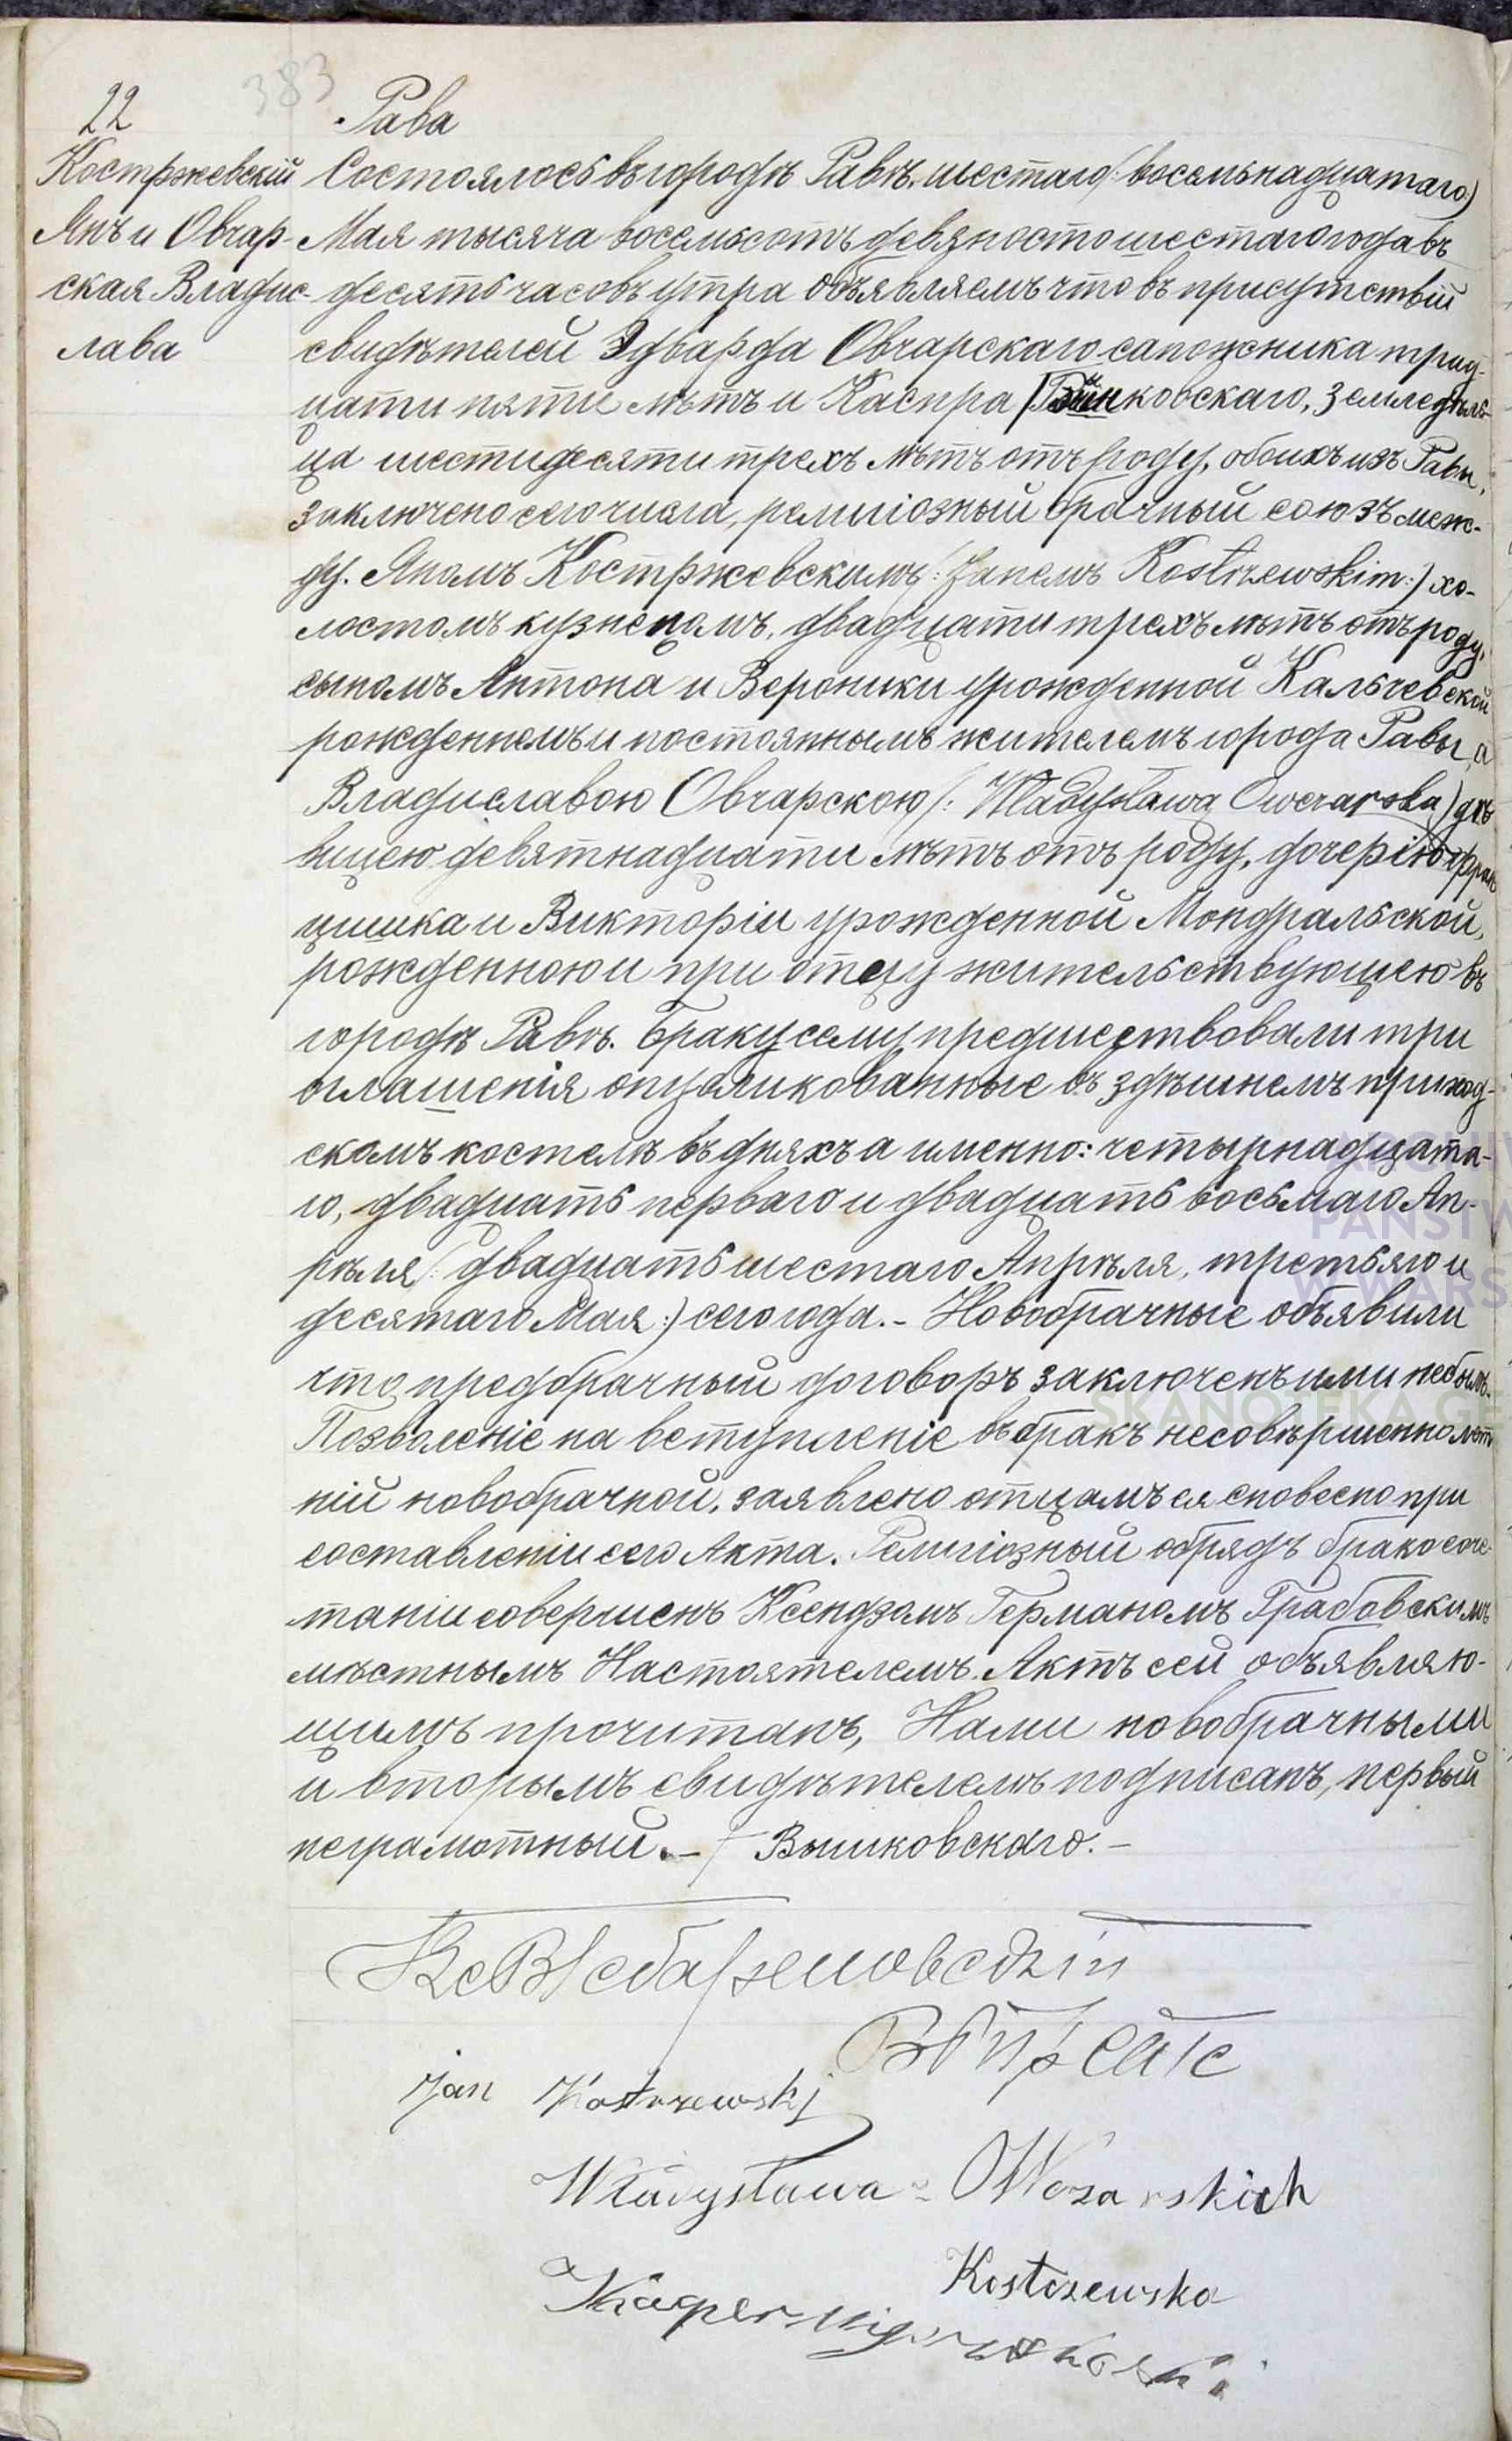 383
22 Рава
Костржевскій Состоялось въ городѣ Равѣ, шестаго (:восемьнадцатаго:)
Янъ и Овчар- Мая тысяча восемьсотъ девяносто шестаго года въ
ская Владис- десять часовъ утра объявляемъ что въ присутствій
лава свидѣтелей Эдварда Овчарскаго сапожника трид-
цати пяти лѣтъ и Каспра ковскаго, земледѣль-
ца шестидесяти трехъ лѣтъ отъ роду, обоихъ изъ Равы,
заключено сего числа, религіозный брачный союзъ меж-
ду. Яномъ Костржевскимъ (:Janemъ Kostrzewskim:) хо-
лостомъ кузнецомъ, двадцати трехъ лѣтъ отъ роду,
сыномъ Антона и Вероники урожденной Кальчевской
рожденнемъ и постояннымъ жителемъ города Равы, а
Владиславою Овчарскою (:Władysława Owczarska) дѣ-
вицею девятнадцати лѣтъ отъ роду, дочерію Фран
цишка и Викторіи урожденной Мондральской,
рожденною и при отцу жительствующею въ
городѣ Равѣ. Браку сему предшествовали три
оглашенія опубликованные въ здѣшнемъ приход-
скомъ костелѣ въ дняхъ а именно: четырнадцата-
го, двадцать перваго и двадцать восьмаго Ап-
рѣля (:двадцать шестаго Апрѣля, третьяго и
десятаго Мая:) сего года.- Новобрачные объявили
что предбрачный договоръ заключенъ ими небылъ.
Позволеніе на вступленіе въ бракъ несовершеннолѣт
ній новобрачной, заявлено отцомъ ея словесно при
составленіи сего Акта. Религіозный обрядъ бракосоче-
таніи совершенъ Ксендзомъ Германомъ Грабовскимъ
мѣстнымъ Настоятелемъ. Актъ сей объявляю-
щимъ прочитанъ, Нами новобрачными
и вторымъ свидѣтелемъ подписанъ, первый
неграмотный.- / Вышковскаго.-
Jan Kostrzewskj
Władysława - OWczarskich
Kostrzewska
Kacper
ARCHIW
PAŃSTW
W WARS
SKANOTEKA GE